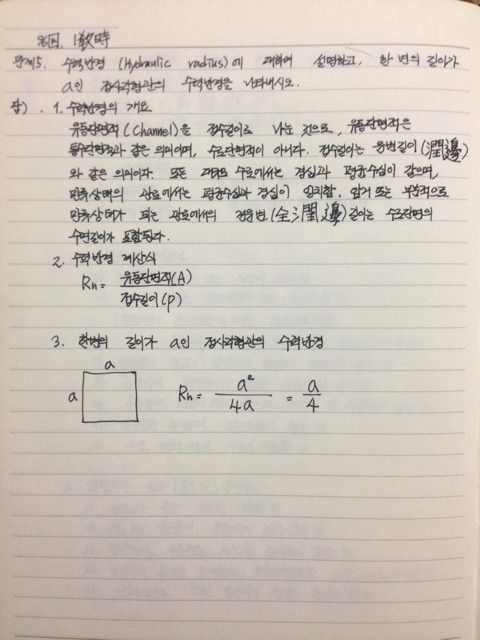 86回. 1敎時
문제5. 수력반경 (Hydraulic radius)에 대하여 설명하고, 한 변의 길이가
a인 정사각형관의 수력반경을 나타내시오.
답) 1. 수력반경의 개요
유동단면적 (Channel)을 접수길이로 나눈 것으로, 유동단면적은
통수단면적과 같은 의미이며, 수로단면적이 아니다. 접수길이는 윤변길이 (潤邊)
와 같은 의미이다. 또한 개수로에서는 경심과 평균수심이 같으며,
만류상태의 관로에서는 평균수심과 경심이 일치함. 암거 또는 부분적으로
만류상태가 되는 관로에서의 전윤변 (全潤邊) 길이는 수로단면의
수면길이가 포함된다.
2. 수력반경 계산식
Rh = 유동단면적(A) / 접수길이(P)
3. 한변의 길이가 a인 정사각형관의 수력반경
a
a
Rh = a² / 4a = a / 4